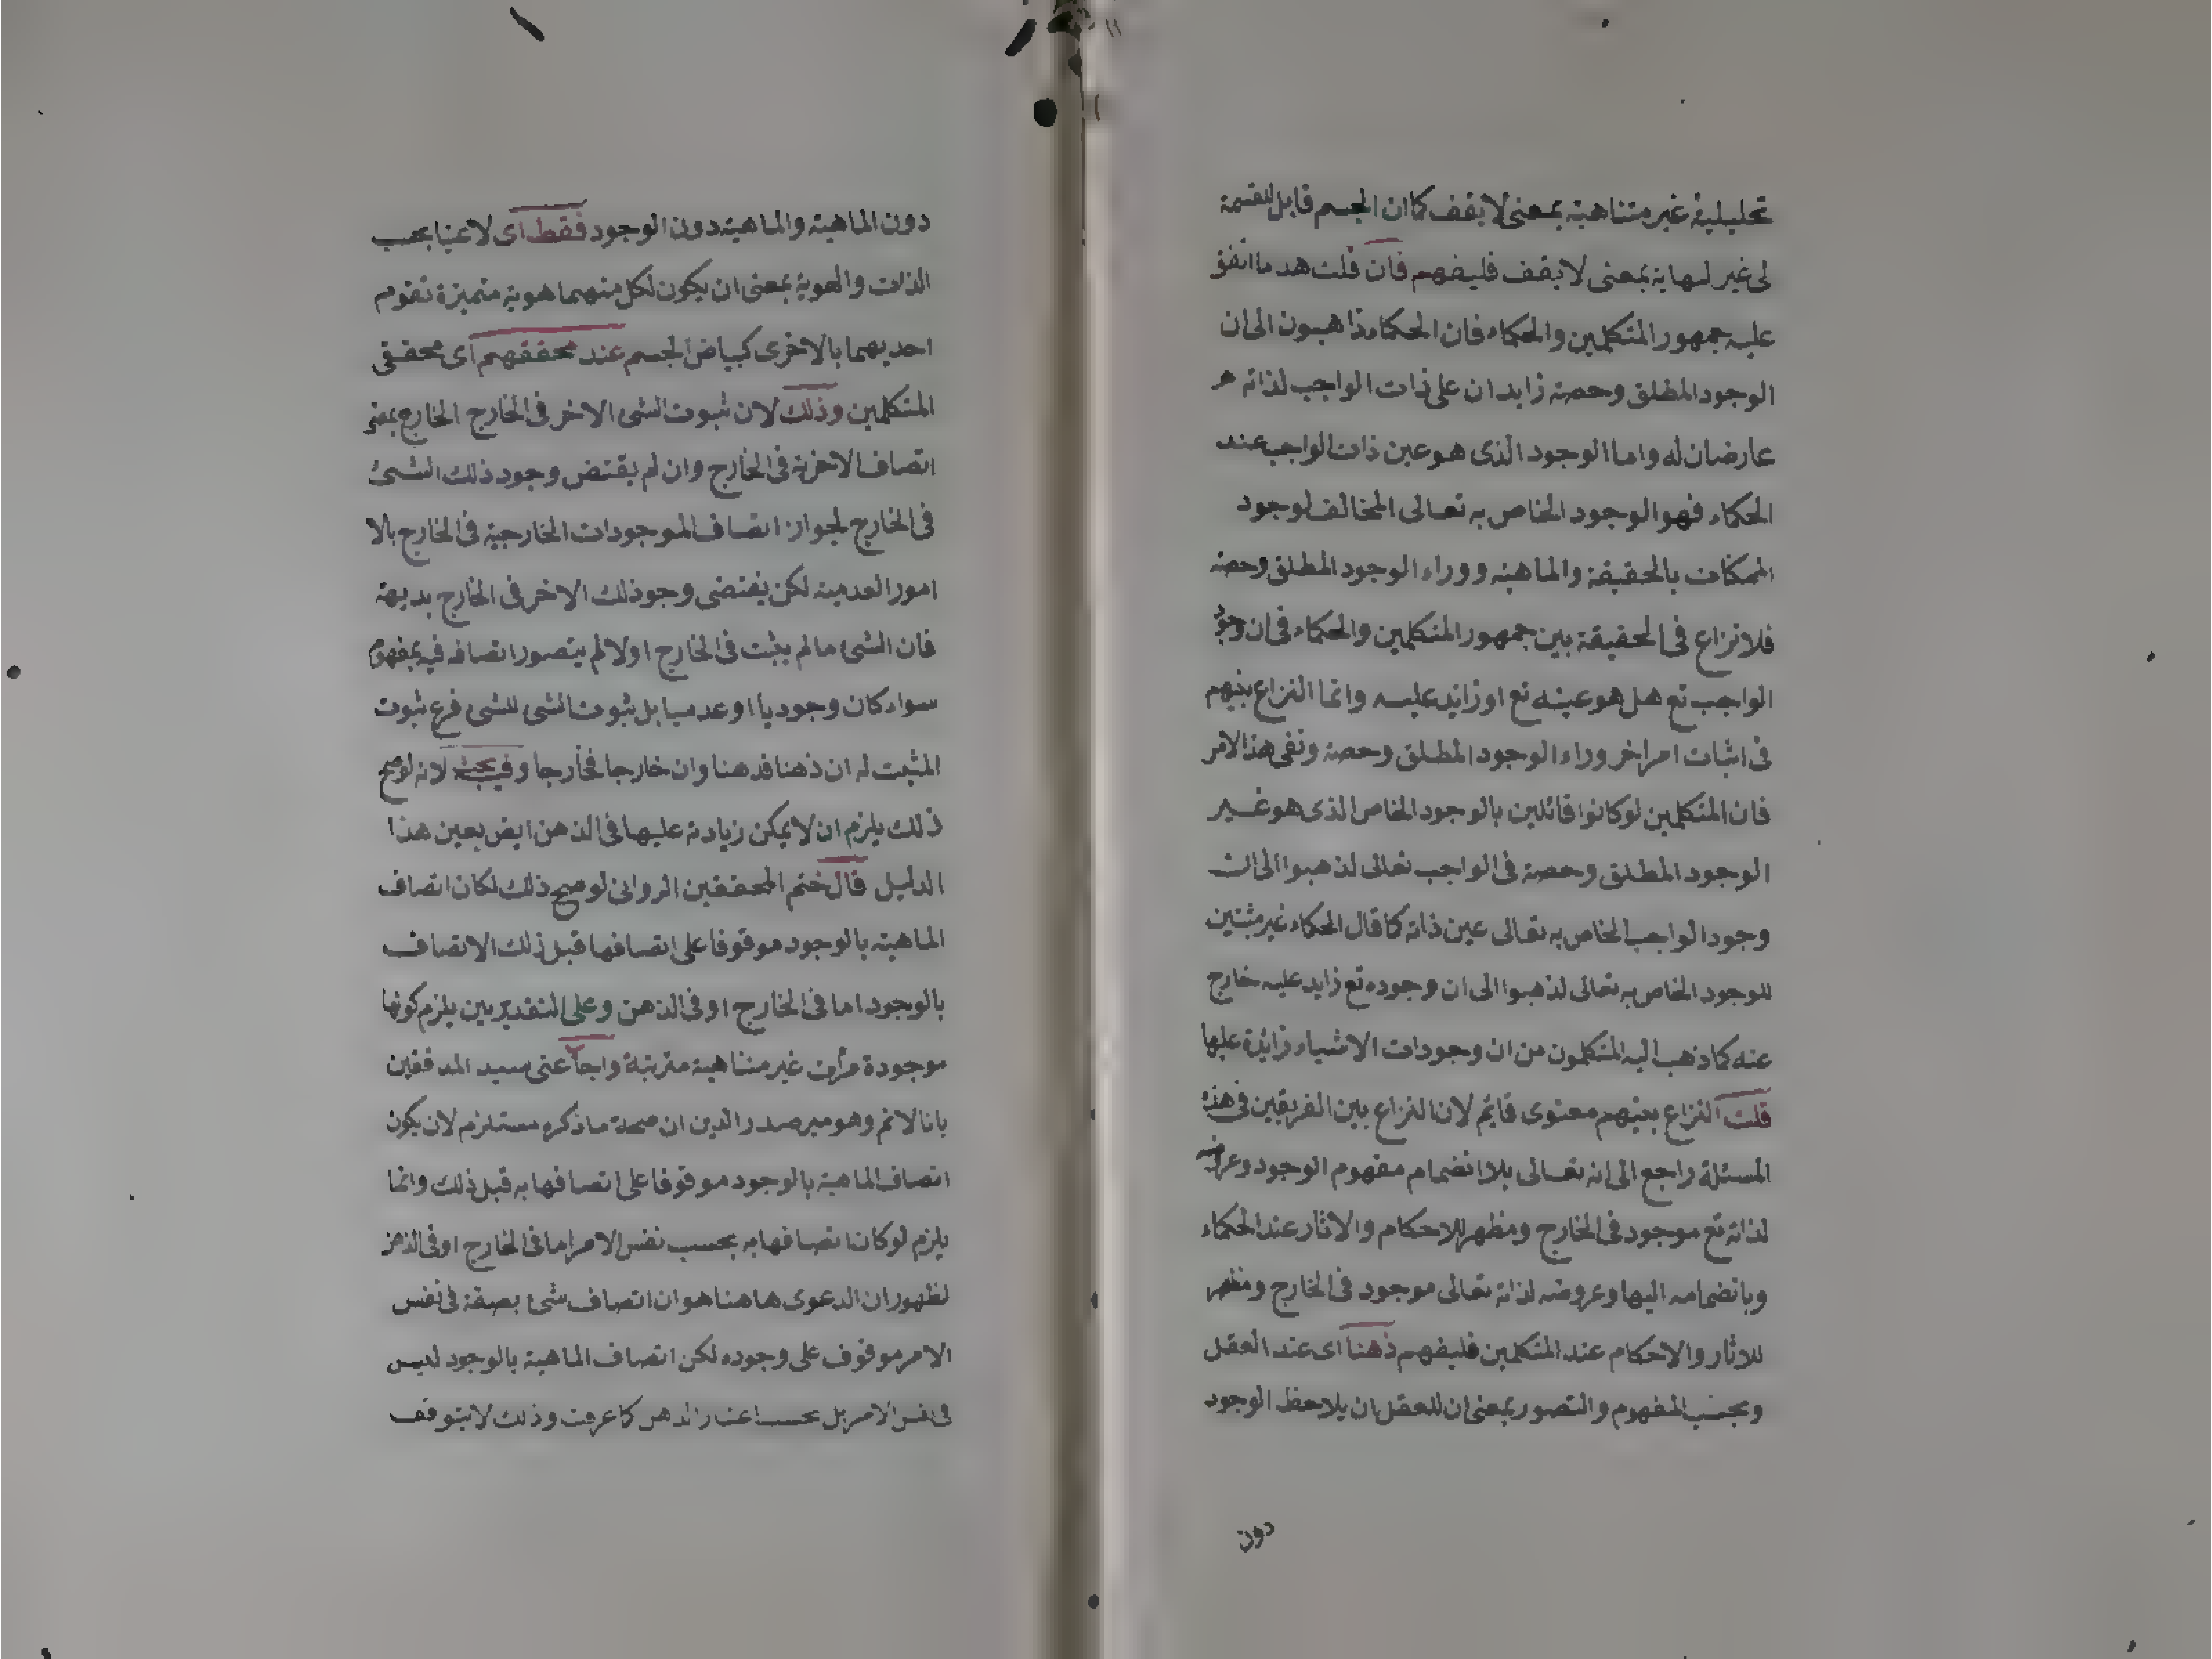 تحليلية غير متناهية بمعنى لا يقف كما ان الجسم قابل للقسمة
لى غير لنهاية بمعنى لا يقف فليفهم فان قلت هد ما اتفق
عليه جمهور المتكلمين والحكماء فان الحكماء ذاهبون الى ان
الوجود المطلق وحصته زايدان على ذات الواجب لذاته
عارضان له واما الوجود الذى هو عين ذات الواجب عند
الحكماء فهو الوجود الخاص به تعالى المخالف لوجود
الممكنات بالحقيقة والماهية ووراء الوجود المطلق وحصته
فلا نزاع فى الحقيقة بين جمهور المتكلمين والحكماء فى ان وجود
الواجب تع هل هو عينه تع او زايد عليه وانما النزاع بينهم
فى اثبات امر اخر وراء الوجود المطلق وحصته ونفى هذا الامر
فان المتكلمين لو كانوا قائلين بالوجود الخاص الذى هو غير
الوجود المطلق وحصته فى الواجب تعالى لذهبوا الى ان
وجود الواجب الخاص به تعالى عين ذاته كما قال الحكماء غير مثبتين
للوجود الخاص به تعالى لذهبوا الى ان وجوده تع زايد عليه خارج
عنه كما ذهب اليه المتكلمون من ان وجودات الاشياء زايدة عليها
قلت النزاع بينهم معنوى قايم لان النزاع بين الفريقين فى هذه
المسئلة راجع الى انه تعالى بلا انضمام مفهوم الوجود وعروضه
لذاته تع موجود فى الخارج ومظهر للاحكام والاثار عند الحكماء
وبانضمامه اليها وعروضه لذاته تعالى موجود فى الخارج ومظهر
للاثار والاحكام عند المتكلمين فليفهم ذهنا اى عند العقل
وبحسب المفهوم والتصور بمعنى ان للعقل ان يلاحظ الوجود
دون
دون الماهية والماهية دون الوجود فقط اى لا عينا بحسب
الذات والهوية بمعنى ان يكون لكل منهما هوية متميزة تقوم
احديهما بالاخرى كبياض الجسم عند محققهم اى محققى
المتكلمين وذلك لان ثبوت الشى الاخر فى الخارج الخارج بمعنى
اتصاف الاخر به فى الخارج وان لم يقتض وجود ذلك الشئ
فى الخارج لجواز اتصاف الموجودات الخارجية فى الخارج بالا
امور العدمية لكن يقتضى وجود ذلك الاخر فى الخارج بديهة
فان الشئ مالم يثبت فى الخارج اولا لم يتصور اتصافه فيه بمفهوم
سواء كان وجوديا او عدميا بل ثبوت الشى للشى فرع ثبوت
المثبت له ان ذهنا فذهنا وان خارجا فخارجا وفيه بحث لانه لو صح
ذلك يلزم ان لا يمكن زيادته عليها فى الذهن ايض بعين هذا
الدليل قال ختم المحققين الروانى لو صح ذلك لكان اتصاف
الماهية بالوجود موقوفا على اتصافها قبل ذلك الاتصاف
بالوجود اما فى الخارج او فى الذهن وعلى التقديرين يلزم كونها
موجودة مرات غير متناهية مترتبة واجاب عنى سيد المدققين
بانا لانم وهو مير صدر الدين ان صحة ما ذكره مستلزم لان يكون
اتصاف الماهية بالوجود موقوفا على اتصافها به قبل ذلك وانما
يلزم لو كان اتصافها به بحسب نفس الامر اما فى الخارج او فى الذهن
لظهور ان الدعوى هاهنا هو ان اتصاف شئ بصفة فى نفس
الامر موقوف على وجوده لكن اتصاف الماهية بالوجود ليس
فى نفس الامر بل بحسب اعتبار الذهن كما عرفت وذلك لا يتوقف